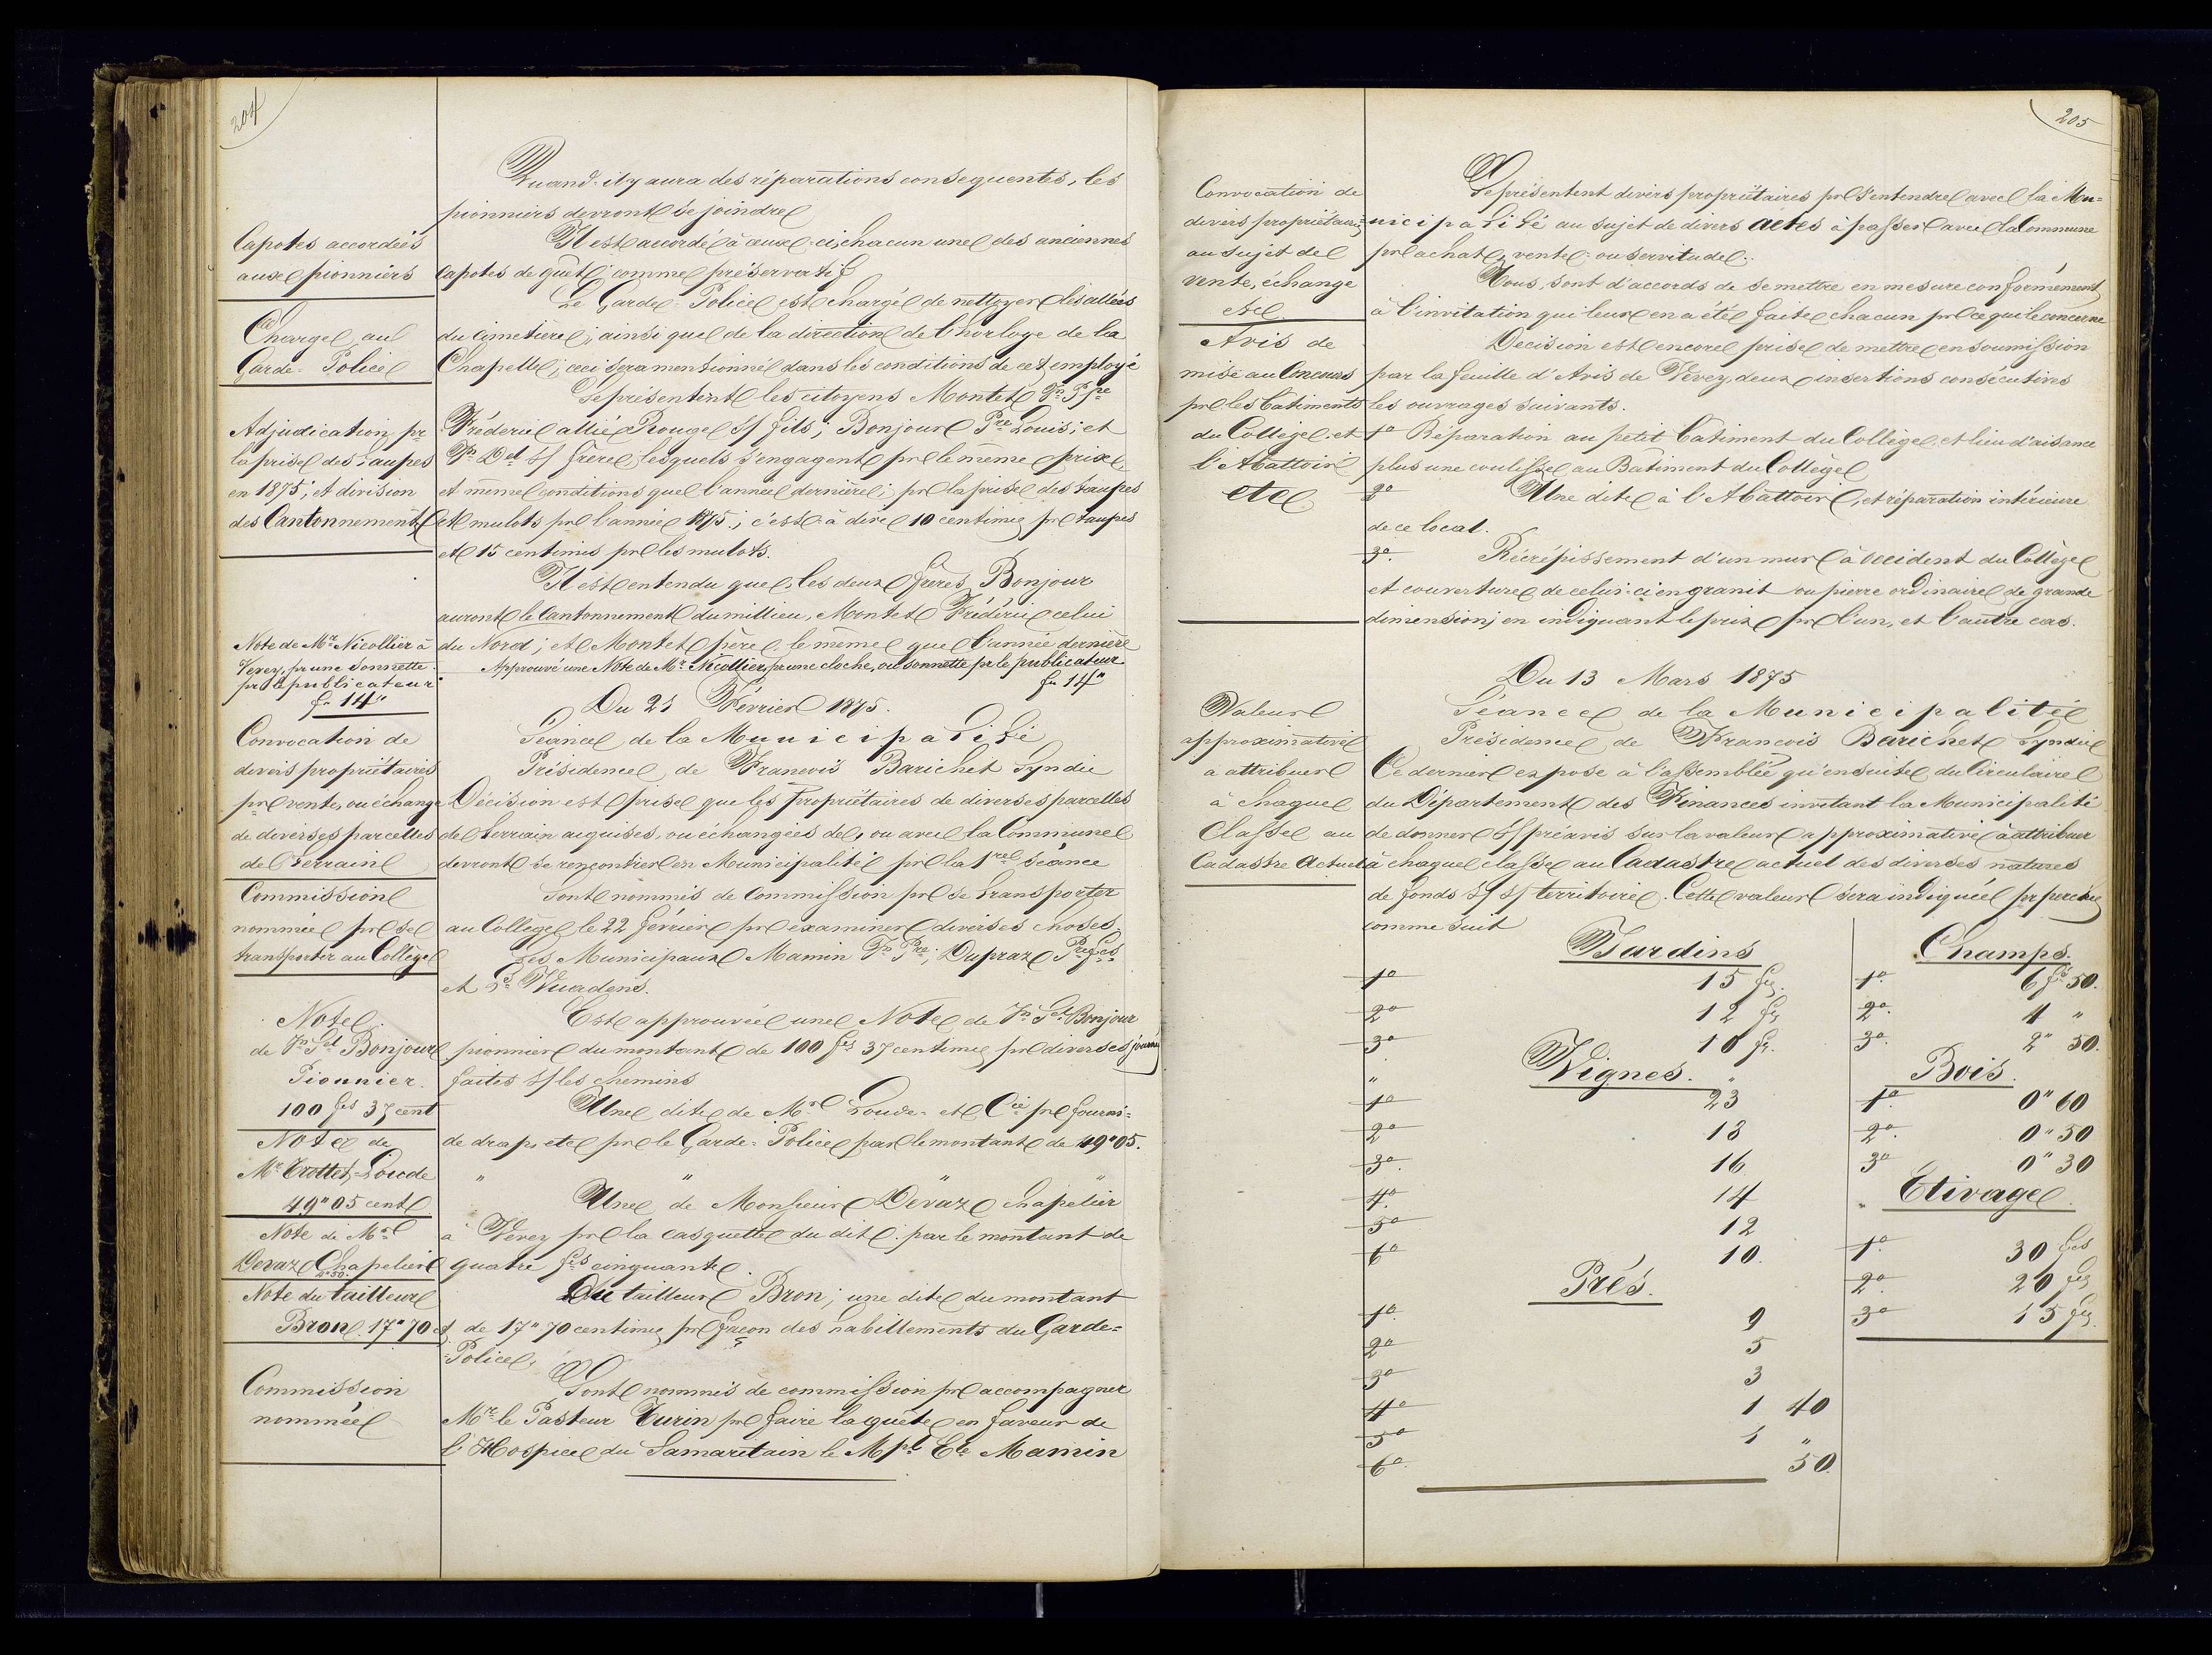 204
Quand il y aura des réparations consequentes, les
pionniers devront se joindre
Capotes accordées
aux pionniers
Il est accordé à ceux-ci, chacun une des anciennes
capotes de guêt, comme préservatif
Charge au
Garde-Police
Le Garde-Police est chargé de nettoyer les allées
du Cimetière, ainsi que de la direction de l'horloge de la
Chapelle; ceci sera mentionné dans les conditions de cet employé
Adjudication pr
la prise des taupes
en 1875, et division
des Cantonnements
Se présentent les citoyens Montet Jn Pre
Fréderic allié Rouge s/ fils; Bonjour Pre Louis; et
Jn Del s/ frère, lesquels s'engagent pr le même prix,
et même conditions que l'année dernière; pr la prise des taupes
et mulots pr l'année 1875; c'est-à dire 10 centimes pr taupes
et 15 centimes pr les mulots.
Il est entendu que les deux frères Bonjour
auront le Cantonnement du millieu, Montet Fréderic celui
du Nord; et Montet père, le même que l'année dernière
Note de Mr Nicollier à
Vevey, pr une sonnette
pr le publicateur
fr 14"
Approuvé une Note de Mr Nicollier, pr une cloche, ou sonnette pr le publicateur
fr 14"
Du 21 Février 1875.
Séance de la Municipalité
Présidence de François Barichet Syndic
Convocation de
divers propriétaires
pr vente, ou échange
de diverses parcelles
de terrain
Décision est prise que les propriétaires de diverses parcelles
de terrain aquises, ou échangées de, ou avec la Commune
devront se rencontrer en Municipalité pr la 1re séance
Commission
nommée pr se
transporter au Collège
Sont nommés de Commission pr se transporter
au Collège le 22 février pr examiner diverses choses.
Les Municipaux Mamin Jn Pre; Dupraz Pre fçs
et Ls Wuardens.
Note
de Jn Sel Bonjour
Pionnier.
100 fcs 37 cent
Est approuvée une Note de Jn Sel Bonjour
pionnier du montant de 100 fcs 37 centimes pr diverses journés
faites s/ les chemins
Note de
Mr Trottet-Loude
49"05 cent
Une dite de Mr Loude et Cie pr fourni-
de drap, etc pr le Garde-Police par le montant de 49"05.
Note de Mr
Devaz Chapelier
4"50.
Une de Monsieur Devaz Chapelier
à Vevey pr la casquette du dit par le montant de
quatre fcs cinquante.
Note du tailleur
Bron 17"70 ct
Du tailleur Bron; une dite du montant
de 17"70 centimes pr façon des habillements du Garde-
-Police.
Commission
nommée
Sont nommés de commission pr accompagner
Mr le Pasteur Turin pr faire la quête en faveur de
l'Hospice du Samaritain le Mpl Ele Mamin
205
Convocation de
divers propriétaires
au sujet de
vente, échange
etc
Se présentent divers propriétaires pr s'entendre avec la Mu-
nicipalité au sujet de divers actes à passer avec la Commune
pr achat, vente, ou servitude.
Tous, sont d'accords de se mettre en mesure conformément
à l'invitation qui leur en a été faite chacun pr ce qui le concerne
Avis de
mise au Concours
pr les batiments
du Collège et
l'Abattoir
etc
Decision est encore prise de mettre en soumission
par la feuille d'Avis de Vevey, deux insertions consécutives
les ouvrages suivants.
1o Réparation au petit batiment du Collège, et lieu d'aisance
plus une coulisse au Batiment du Collège
2o Une dite à l'Abattoir, et réparation intérieure
de ce local.
3o. Récrépissement d'un mur à occident du Collège
et couverture de celui-ci en granit ou pierre ordinaire de grande
dimension, en indiquant le prix pr l'un, et l'autre cas.
Du 13 Mars 1875
Séance de la Municipalité
Présidence de François Barichet Syndic
Valeur
approximative
à attribuer
à chaque
Classe au
Cadastre Actuel
Ce dernier expose à l'assemblée qu'ensuite du Circulaire
du Département des Finances invitant la Municipalité
de donner s/ préavis sur la valeur approximative à attribuer
à chaque classe au Cadastre actuel des diverses natures
de fonds s/ s/ territoire. Cette valeur sera indiquée pr perche
comme suit
Jardins
1o 15 fcs.
2o 12 fcs
3o 10 fr.
Vignes.
1o 23
2o 18
3o. 16
4o. 14
5o 12
6o 10.
Prés.
1o. 9
2o 5
3o 3
4o 1 40
5o 1 "
6o. 50.
Champs.
1o. 6 fs 50.
2o. 4 "
3o. 2" 50.
Bois.
1o. 0"60
2o. 0"50
3o 0"30
Etivage.
1o. 30 fcs
2o. 20 fcs
3o 15 fcs.